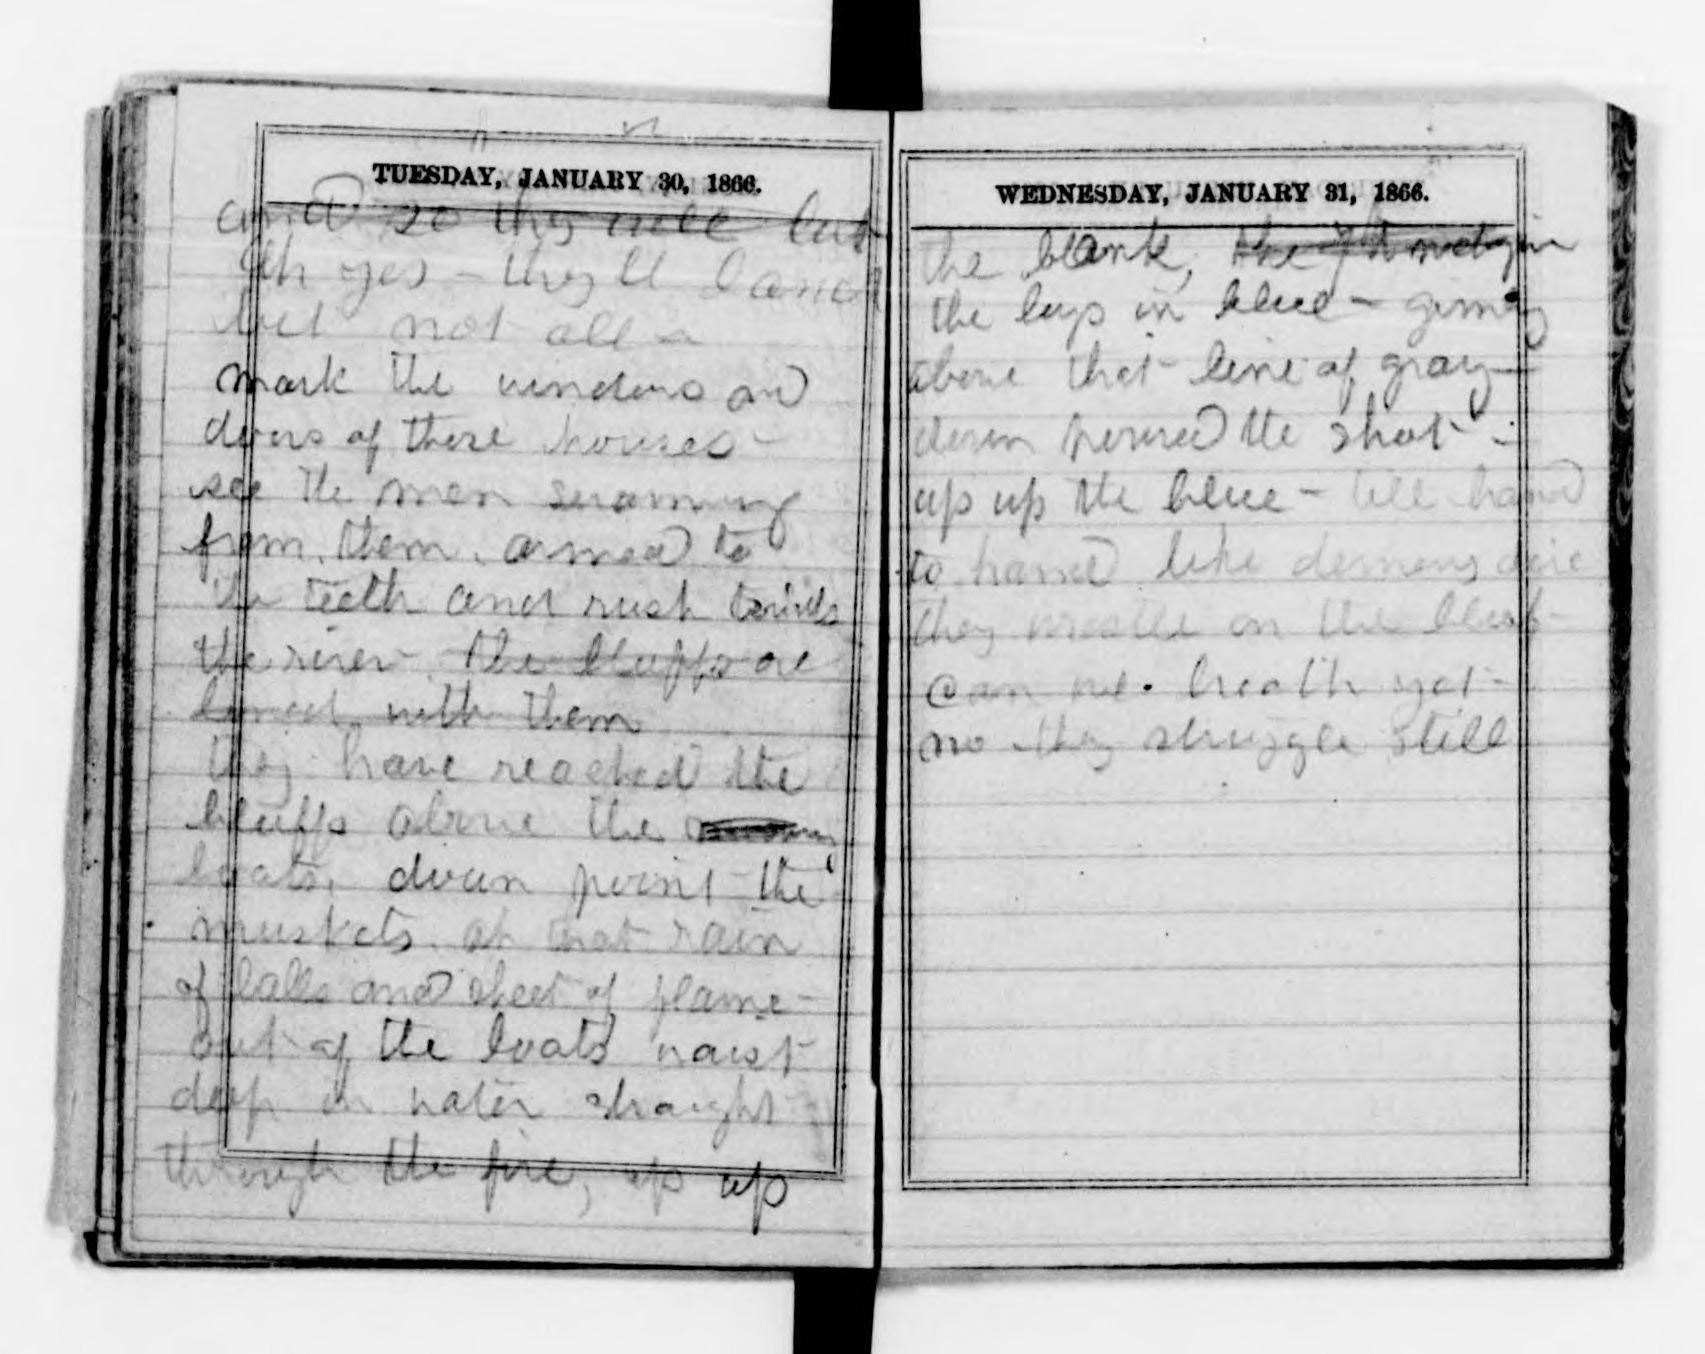 TUESDAY, JANUARY 30, 1866.
and so they will but
Oh yes – they ll land
but not all –
mark the windows and
doors of those houses –
see the men swarming
from them, armed to
the teeth and rush towards
the river – the bluffs are
lined with them
they have reached the
bluffs above the
boats, down point the
muskets. at that rain
of balls and sheet of flame –
out of the boats waist
deep in water straight
through the fire, up up
WEDNESDAY, JANUARY 31, 1866.
the bank,
the boys in blue –
above that line of gray –
down poured the shot –
up up the blue – till hand
to hand like demons
they wrestle on the bluff –
can we breath yet –
no they struggle still